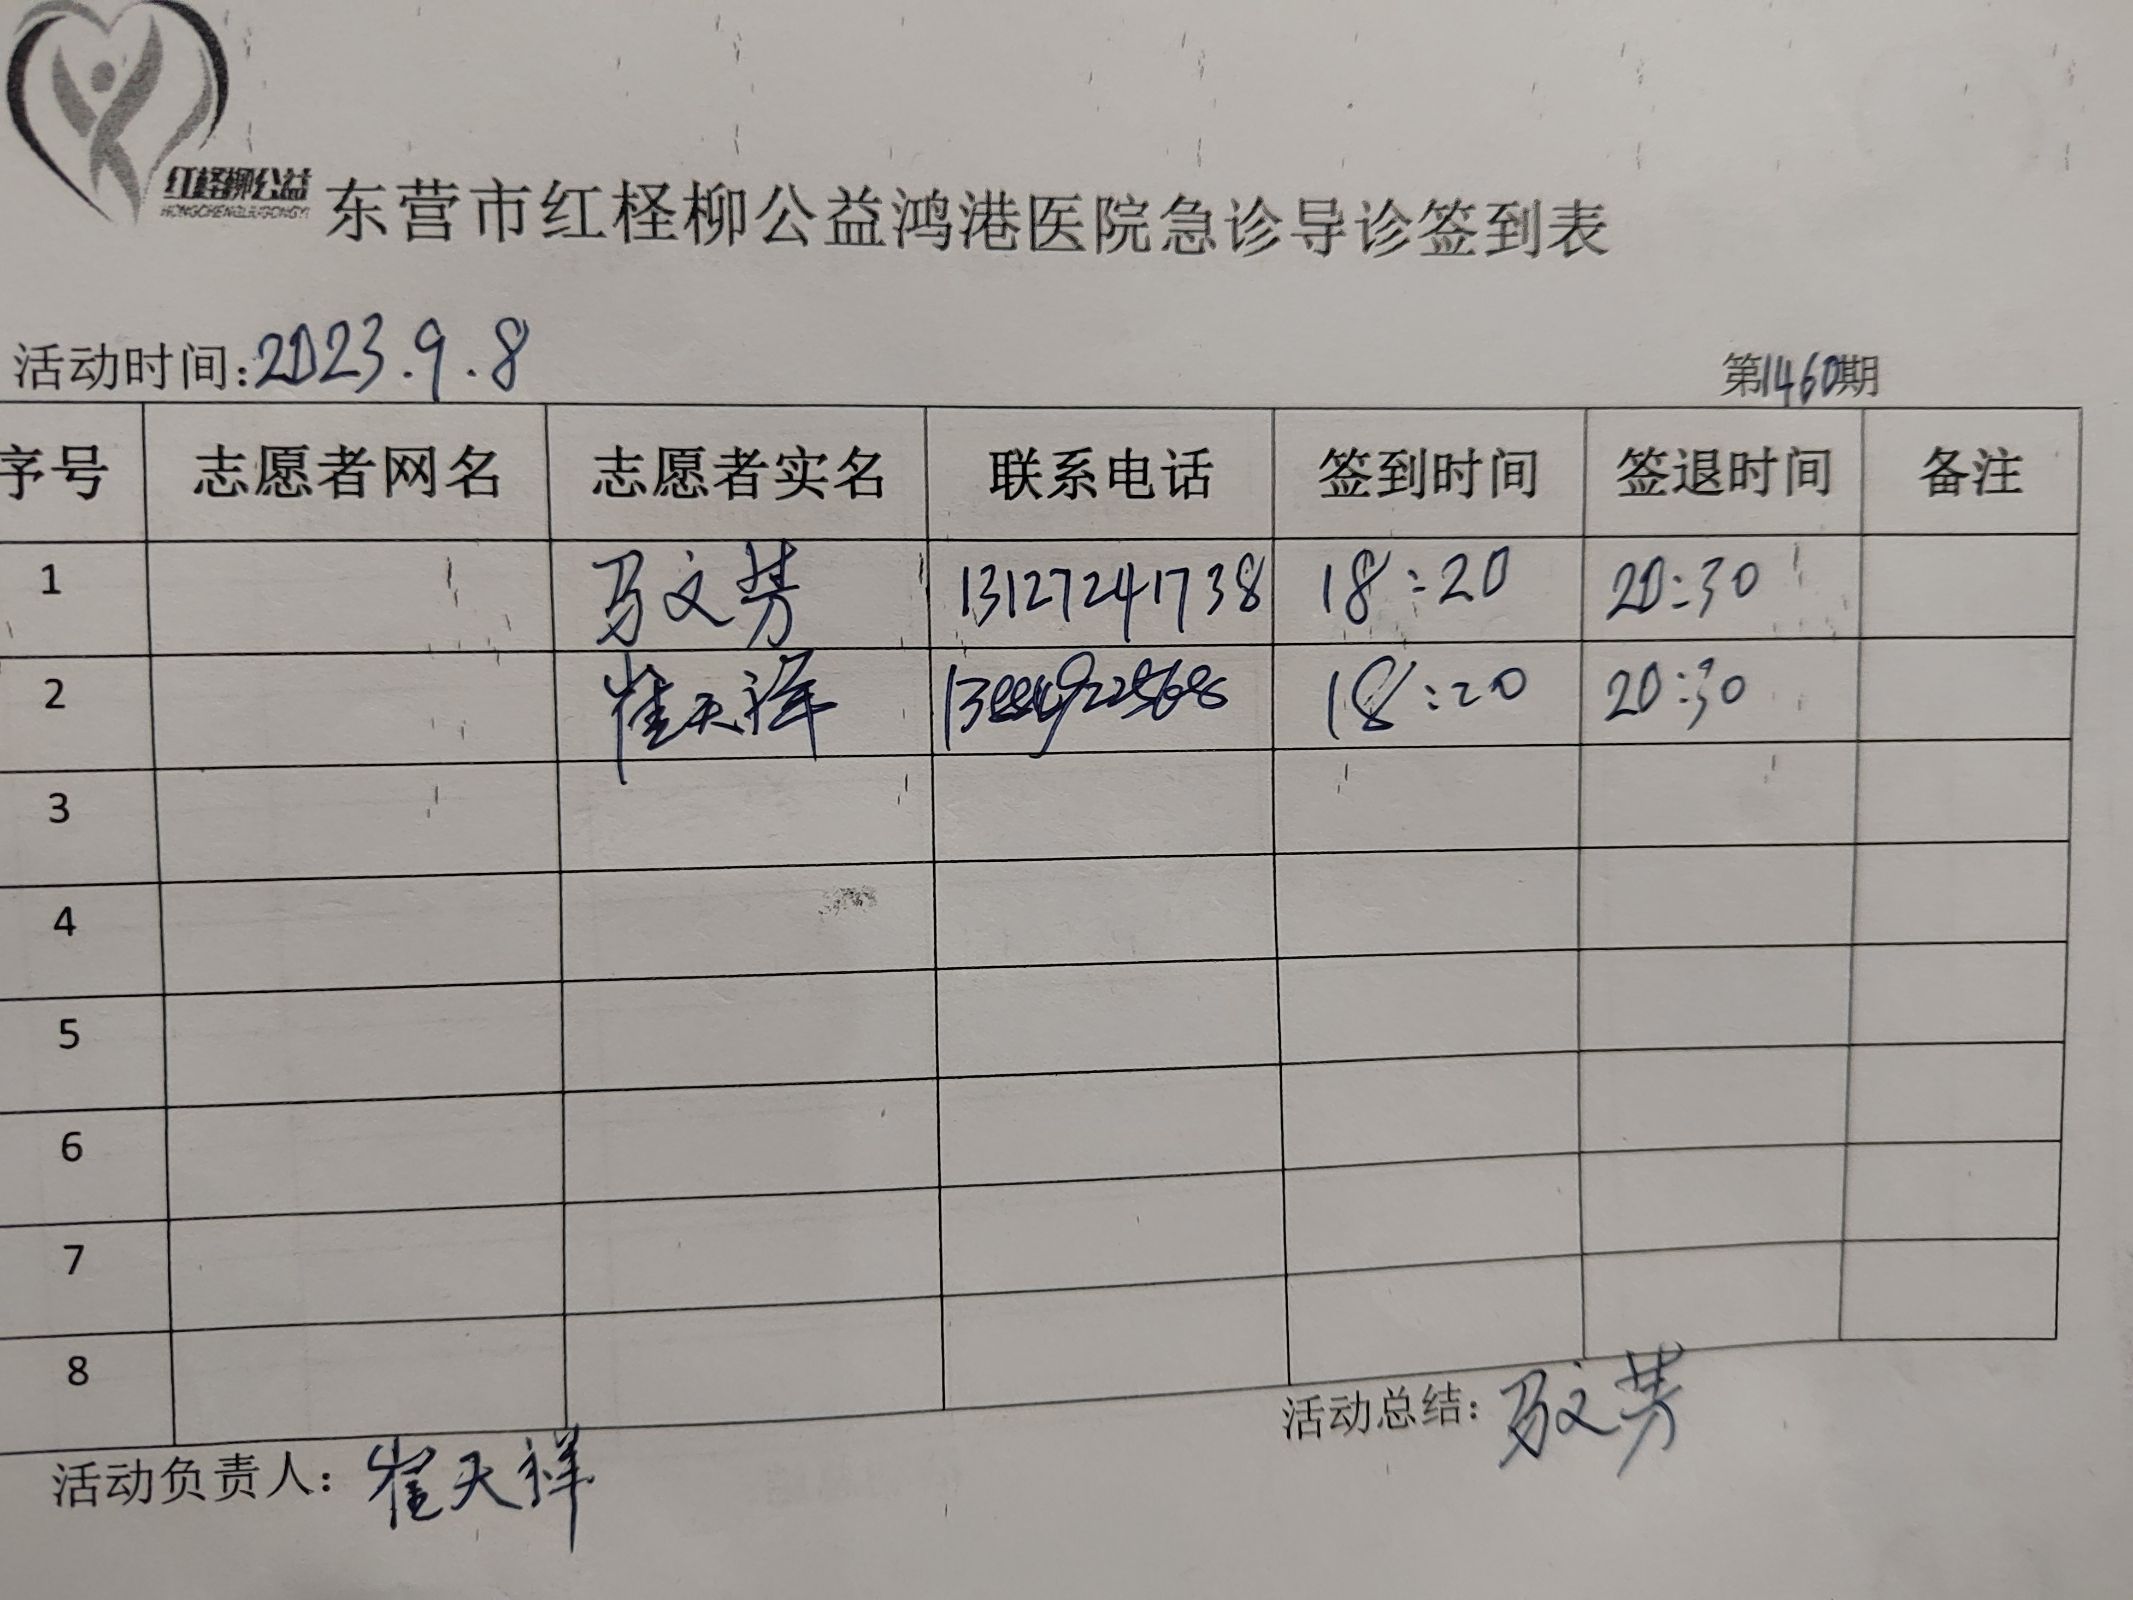 红柽柳公益
HONGCHENGLIUGONGYI
东营市红柽柳公益鸿港医院急诊导诊签到表
活动时间:2023.9.8
第1460期
序号 志愿者网名 志愿者实名 联系电话 签到时间 签退时间 备注
1 马文芳 13127241738 18:20 20:30
2 崔天祥 18:20 20:30
3
4
5
6
7
8
活动总结:马文芳
活动负责人:崔天祥